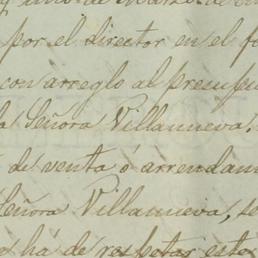 y uno de Marzo de
por el director en el
con arreglo al presupu
la Señora Villanueva,
de venta ó arrendam
Señora Villanueva, se
há de respetar este